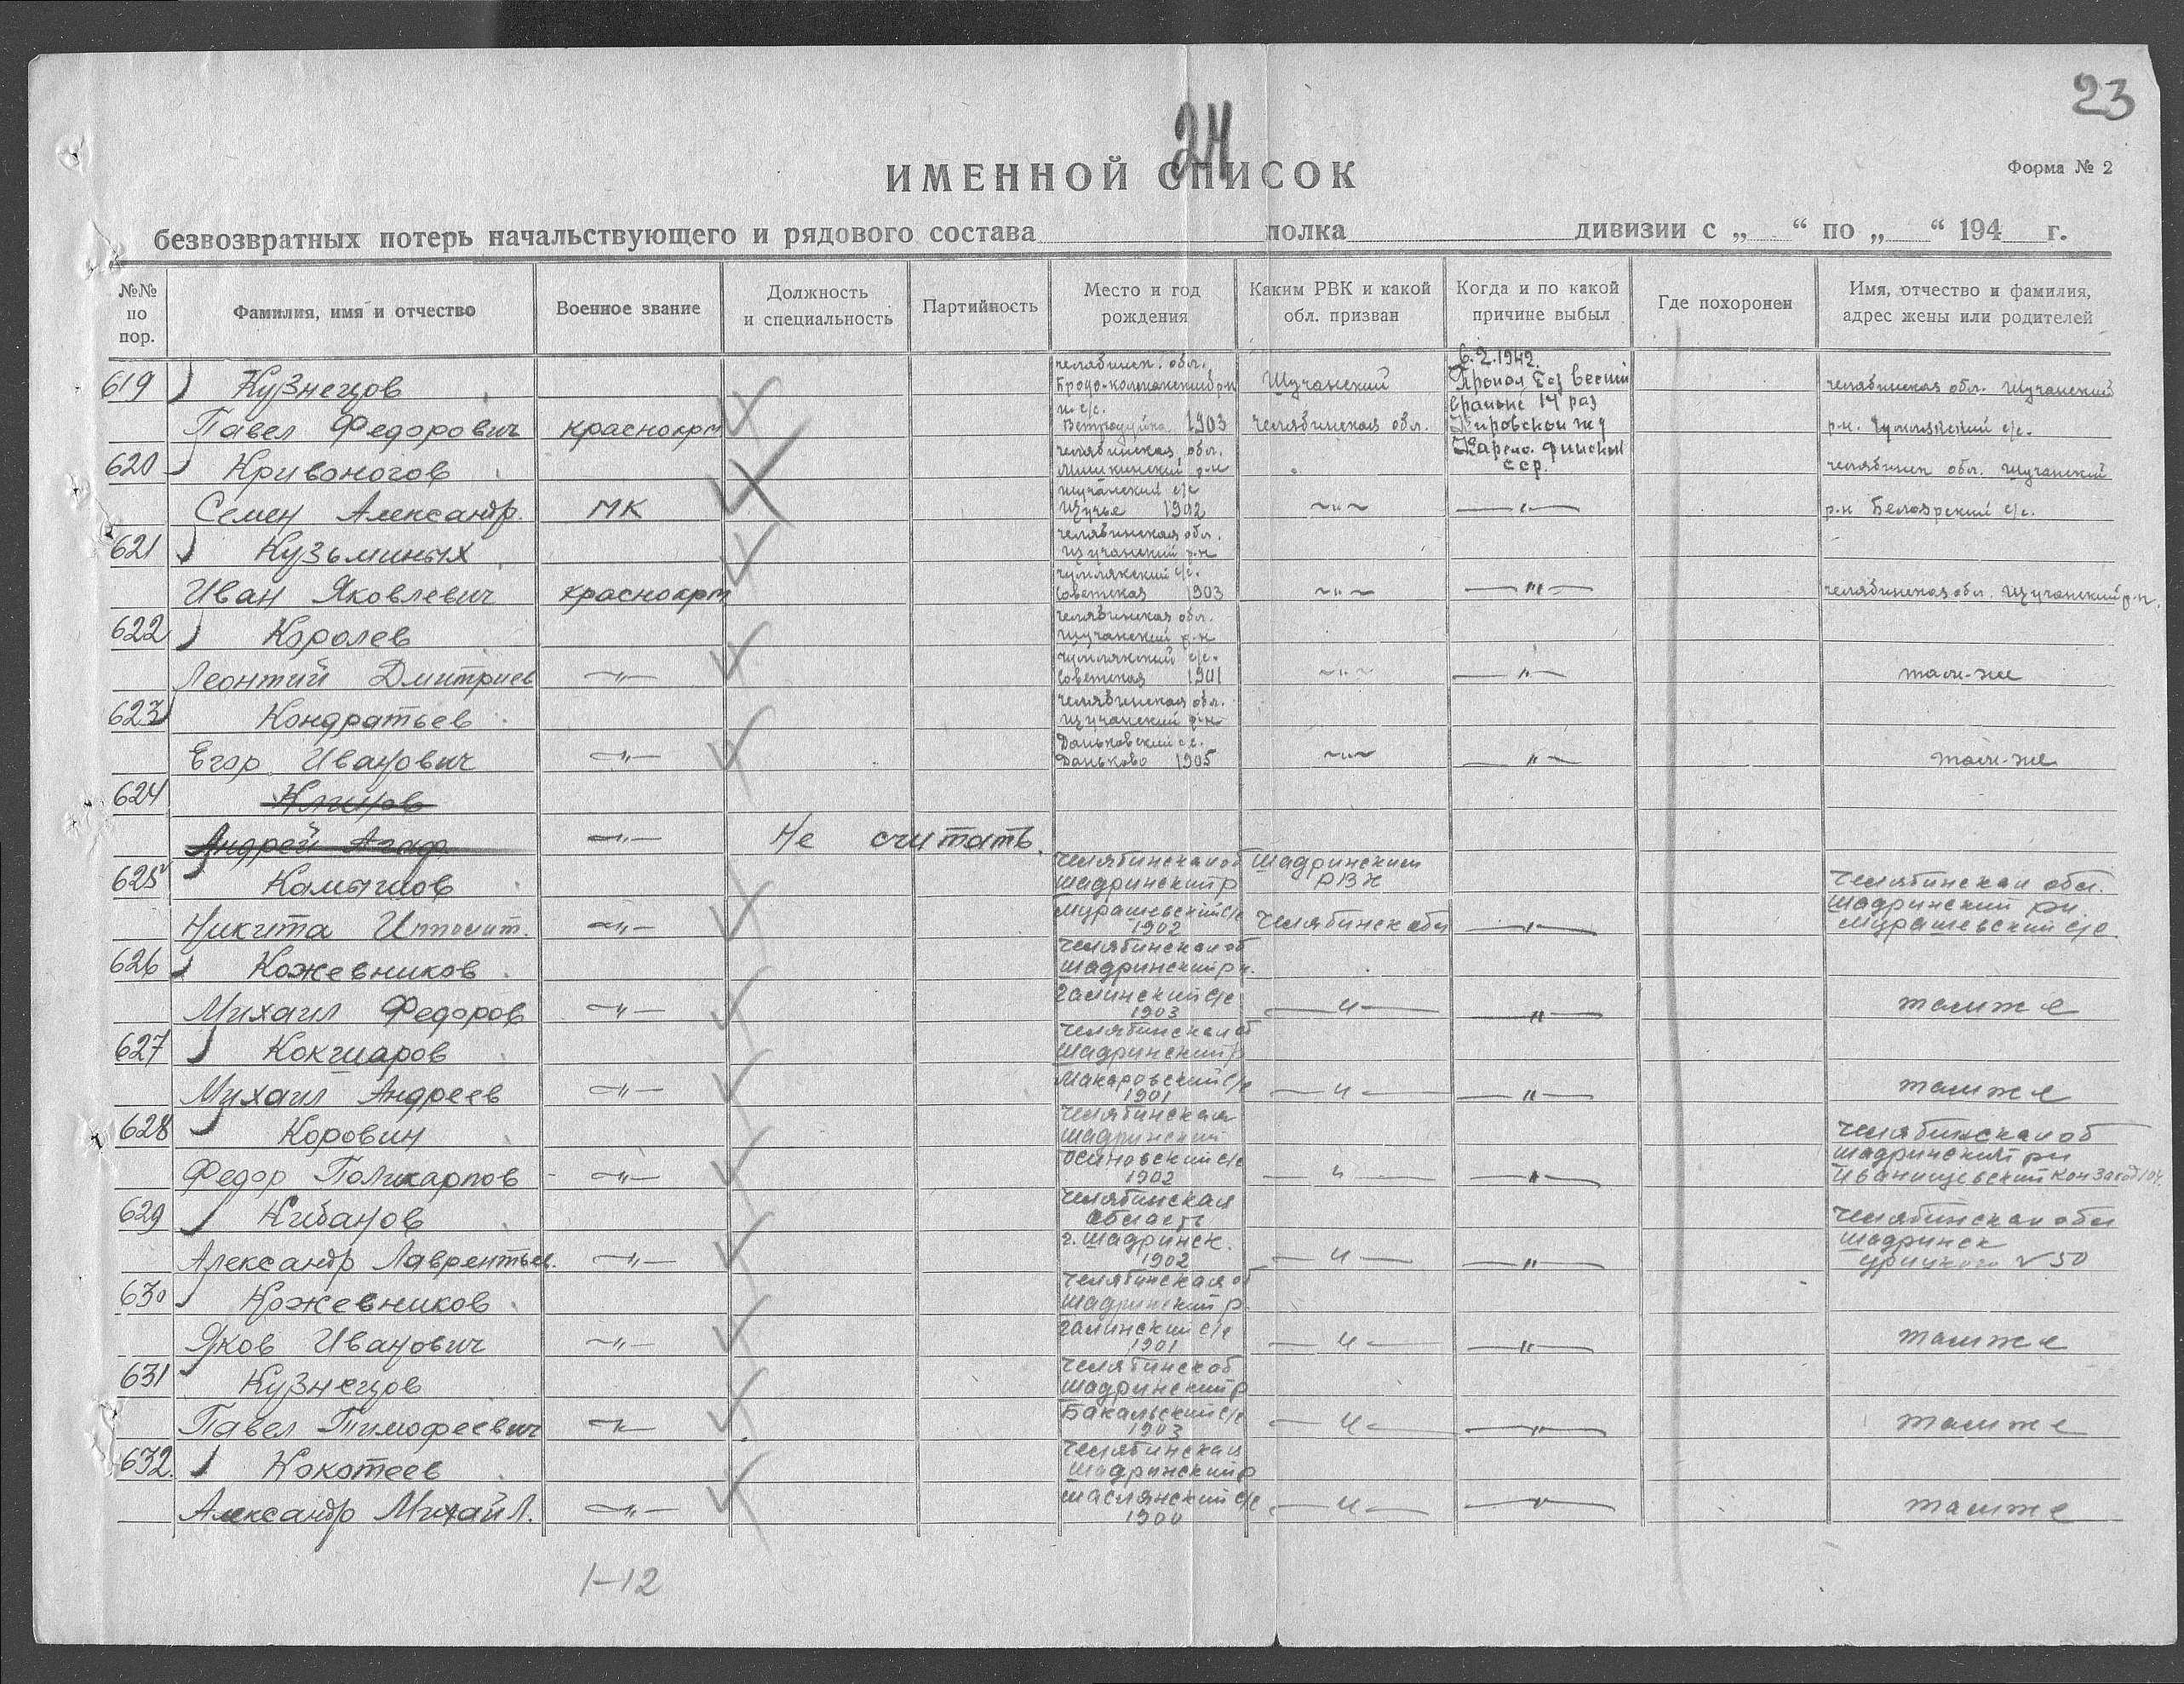 23
24
ИМЕННОЙ СПИСОК
Форма № 2
безвозвратных потерь начальствующего и рядового состава полка дивизии с „ “ по „ “ 194 г.
№№ по пор.
Фамилия, имя и отчество
Военное звание
Должность и специальность
Партийность
Место и год рождения
Каким РВК и какой обл. призван
Когда и по какой причине выбыл
Где похоронен
Имя, отчество и фамилия, адрес жены или родителей
619 Кузнецов
Павел Федорович краснокрм
челябинск. обл.
1903
Щучанский
Челябинская обл.
6.2.1942.
Пропал без вести
в районе 14 раз
Кировской жд
Карело. финской
сср.
челябинская обл. Щучанский
р-н. Чумлякский с/с.
620 Кривоногов
Семен Александр. МК
челябинская обл.
Мишкинский р-н
Щучанский с/с
Щучье 1902
~"~ —"—
челябинск обл. Щучанский
р-н Белоярский с/с.
621 Кузьминых
Иван Яковлевич краснокрм
челябинская обл.
щучанский р-н
чумлякский с/с.
Советская 1903
~"~ —"—
челябинская обл. Щучанский р-н.
622 Королев
Леонтий Дмитриев —"—
челябинская обл.
щучанский р-н
чумлякский с/с.
Советская 1901
~"~ —"—
там-же
623 Кондратьев
Егор Иванович —"—
челябинская обл.
щучанский р-н
Даньковский с.с.
Даньково 1905
~"~ —"—
там-же
624 Климов
Андрей Агаф. —"— Не считать.
625 Камышов
Никита Ипполит. —"—
Челябинская об
Шадринский р
Мурашевский с/с
1902
Шадринским
РВК
Челябинск обл
—"—
Челябинская обл.
Шадринский рн.
Мурашевский с/с.
626 Кожевников
Михаил Федоров —"—
Челябинская об
Шадринский рн.
Галинский с/с
1903
—"— —"—
там же
627 Кокшаров
Михаил Андреев —"—
Челябинская об
Шадринский р
Макаровский с/с
1901
—"— —"—
там же
628 Коровин
Федор Поликарпов —"—
Челябинская
Шадринский
Осиновский с/с
1902
—"— —"—
Челябинская об
Шадринский рн
Иванищевский конзавод
629 Кибанов
Александр Лаврентьев. —"—
Челябинская
область
г. Шадринск.
1902
—"— —"—
Челябинская обл
Шадринск
Урицкого 50
630 Кожевников
Яков Иванович —"—
Челябинская об
Шадринский р
Галинский с/с
1901
—"— —"—
там же
631 Кузнецов
Павел Тимофеевич —"—
Челябинск об
Шадринский р
Бакальский с/с
1903
—"— —"—
там же
632. Кокотеев
Александр Михайл. —"—
Челябинская
Шадринский р
Маслянский с/с
1900
—"— —"—
там же
1-12